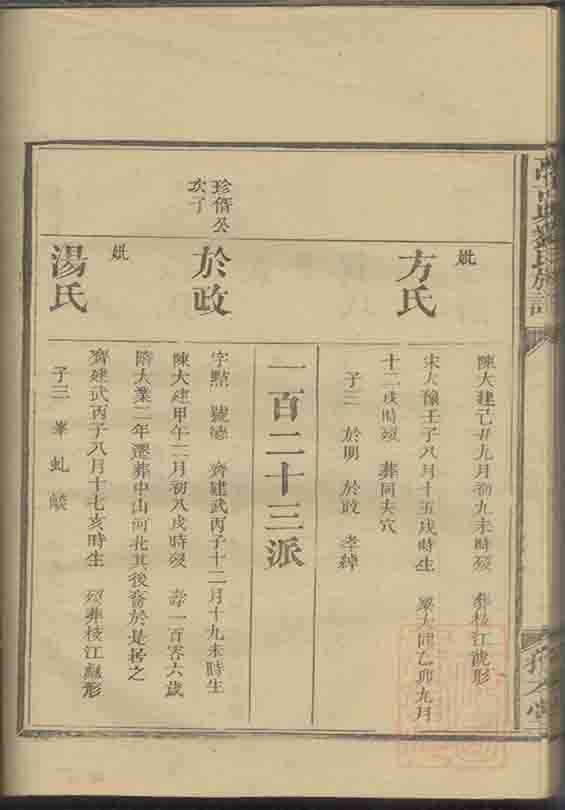 劉氏族譜
陳大建己丑九月初九未時歿 葬枝江龍形
妣
方氏
宋大豫壬子八月十五戌時生 梁大同乙卯九月
十二戌時歿 葬同夫穴
子三 於明 於政 孝綽
一百二十三派
珍脩公
次子
於政
字點 號德 齊建武丙子十二月十九未時生
陳大建甲午二月初八戌時歿 壽一百零六歲
隋大業二年遷葬中山河北其後裔於是居之
妣
湯氏
齊建武丙子八月十七亥時生 歿葬枝江龜形
子三 峯 虬